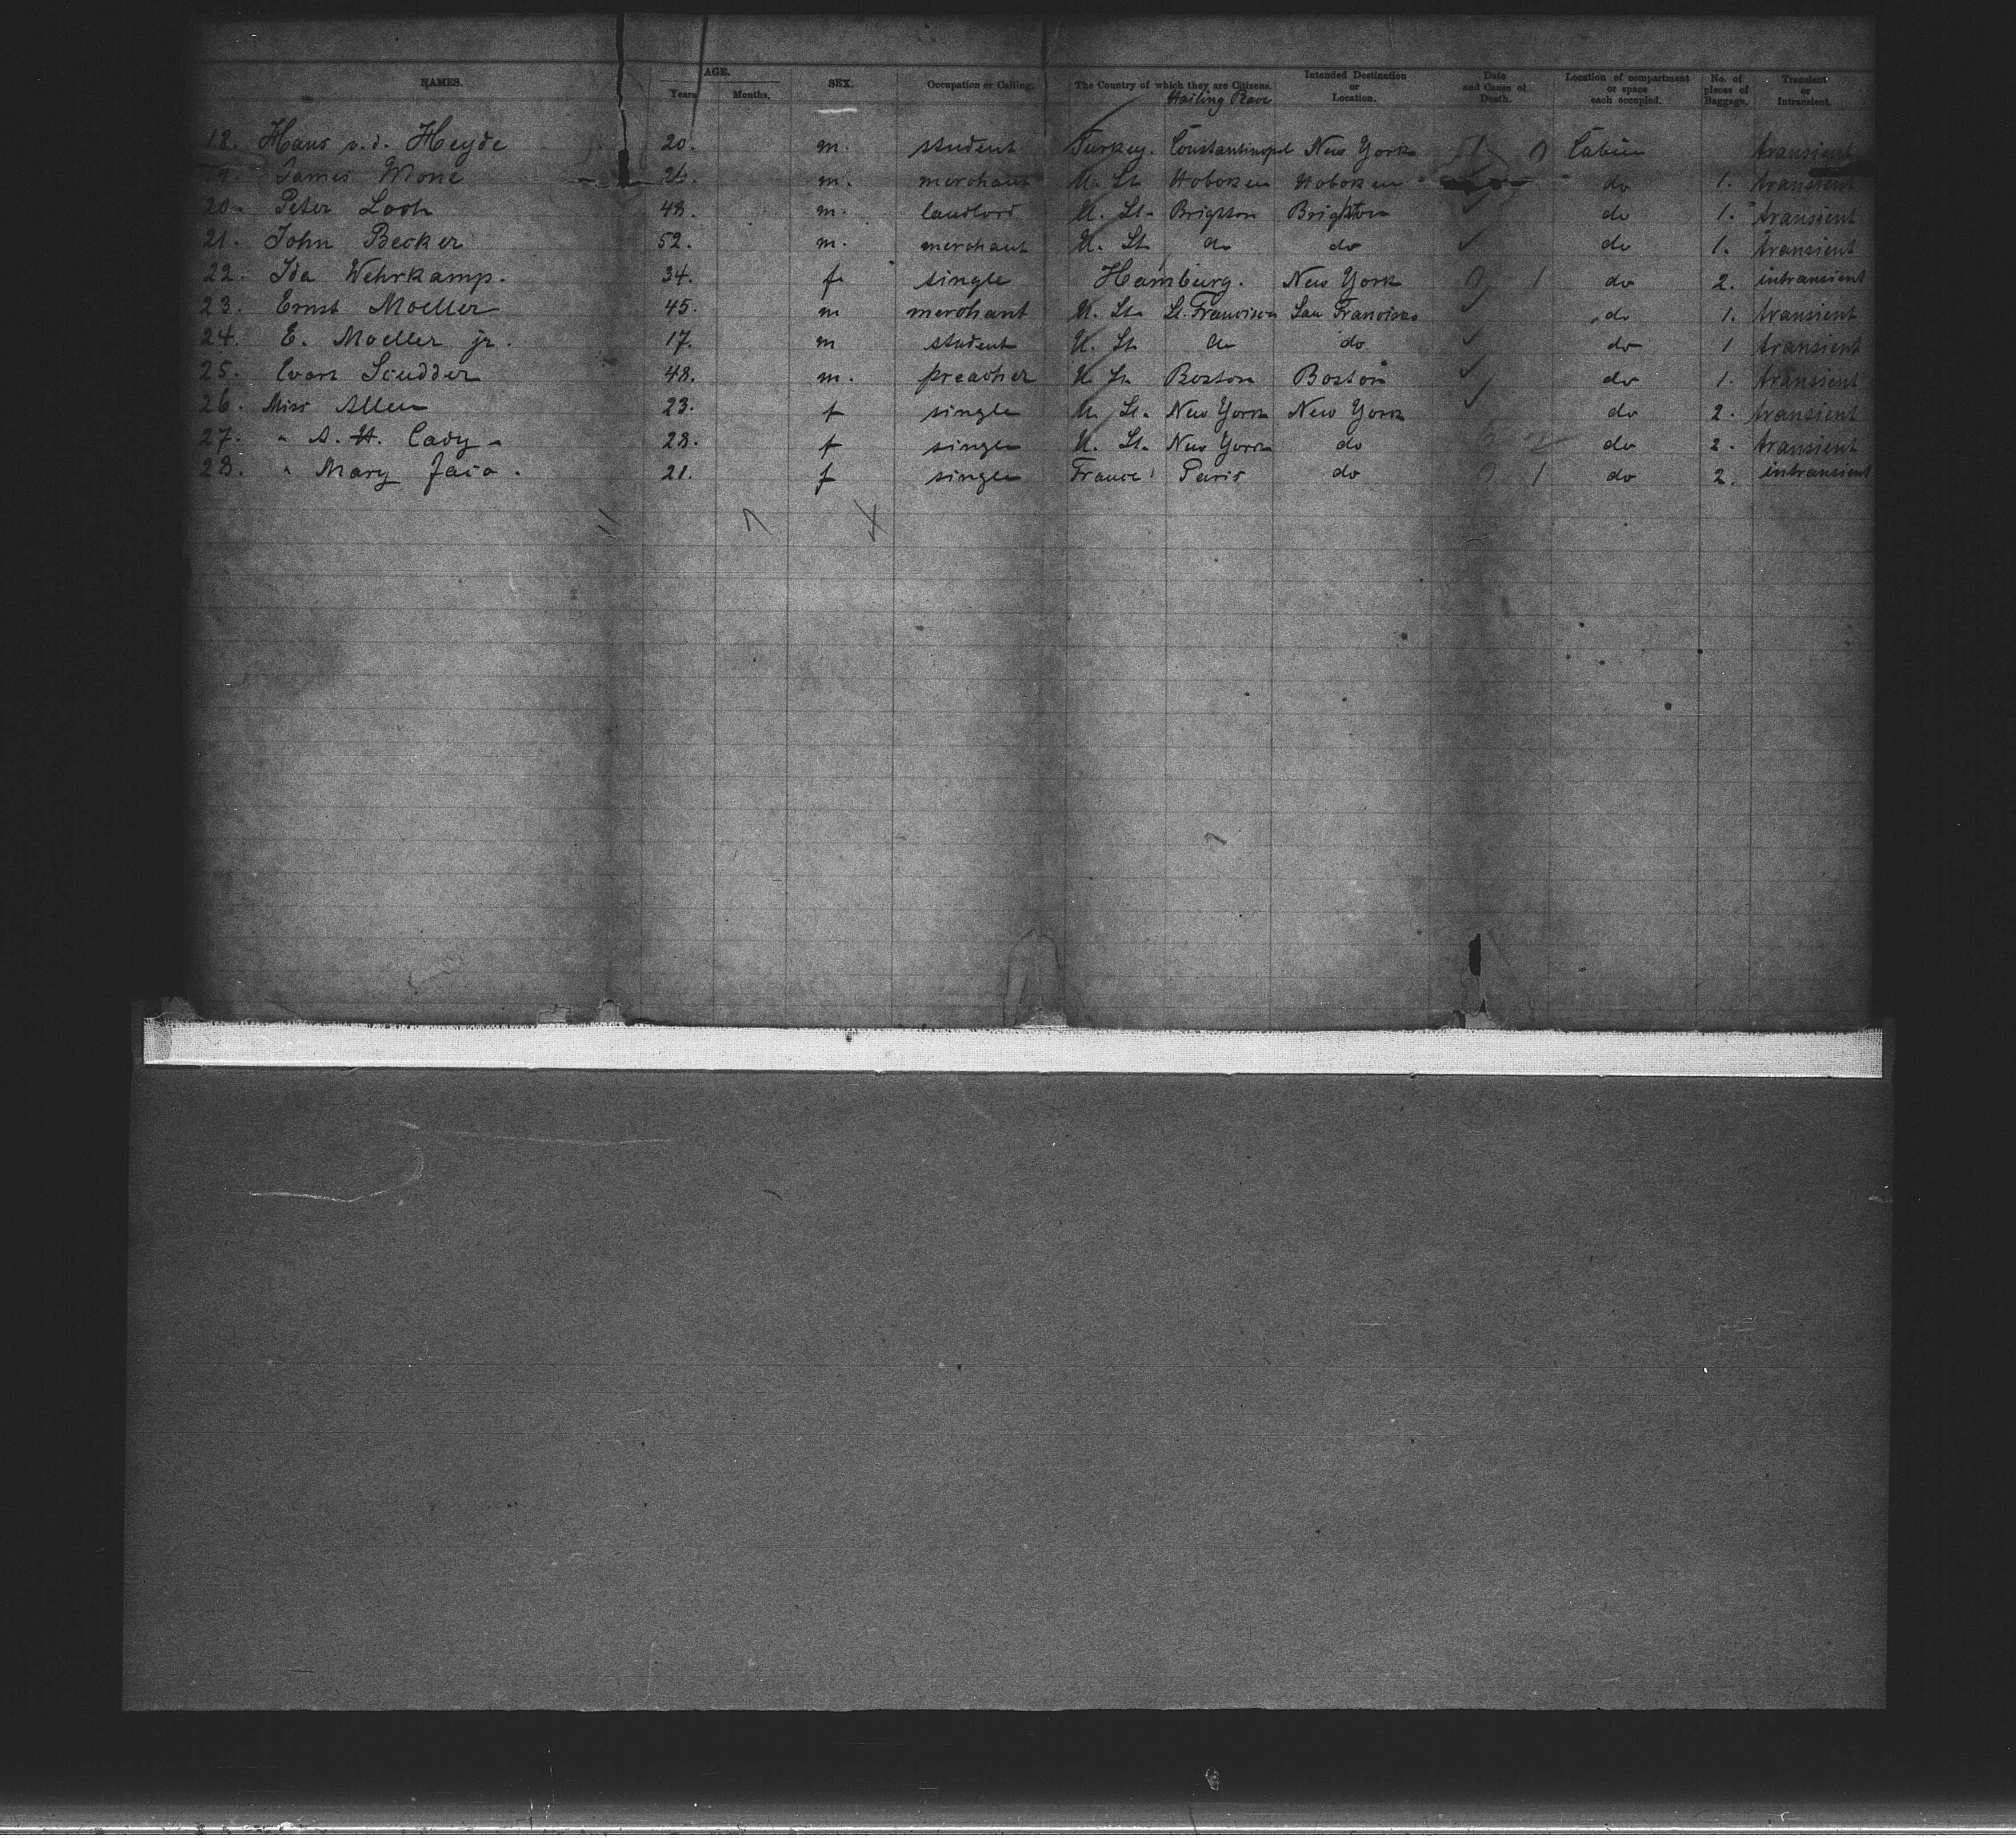 NAMES. AGE. Years Months. SEX. Occupation or Calling. The Country of which they are Citizens. Intended Destination or Location. Date and Cause of Death. Location of compartment or space each occupied. No. of pieces of Baggage. Transient or Intransient.
Hailing Place
18. Hans v. d. Heyde 20. m. student Turkey. Constantinopel New York 0 Cabin transient
19. James Mone 26. m. merchant U. St. Hoboken Hoboken do 1. transient
20. Peter Looh 48. m. landlord U. St. Brighton Brighton do 1. transient
21. John Becker 52. m. merchant U. St. do do do 1. transient
22. Ida Wehrkamp. 34. f. single Hamburg. New York 0 1 do 2. intransient
23. Ernst Moeller 45. m merchant U. St. St. Francisco San Francisco do 1. transient
24. E. Moeller jr. 17. m student U. St. do do do 1 transient
25. Evart Scudder 48. m. preacher U. St. Boston Boston do 1. transient
26. Miss Allen 23. f single U. St. New York New York do 2. transient
27. " A. H. Cady 28. f single U. St. New York do do 2. transient
28. " Mary 21. f single France Paris do 0 1 do 2. intransient